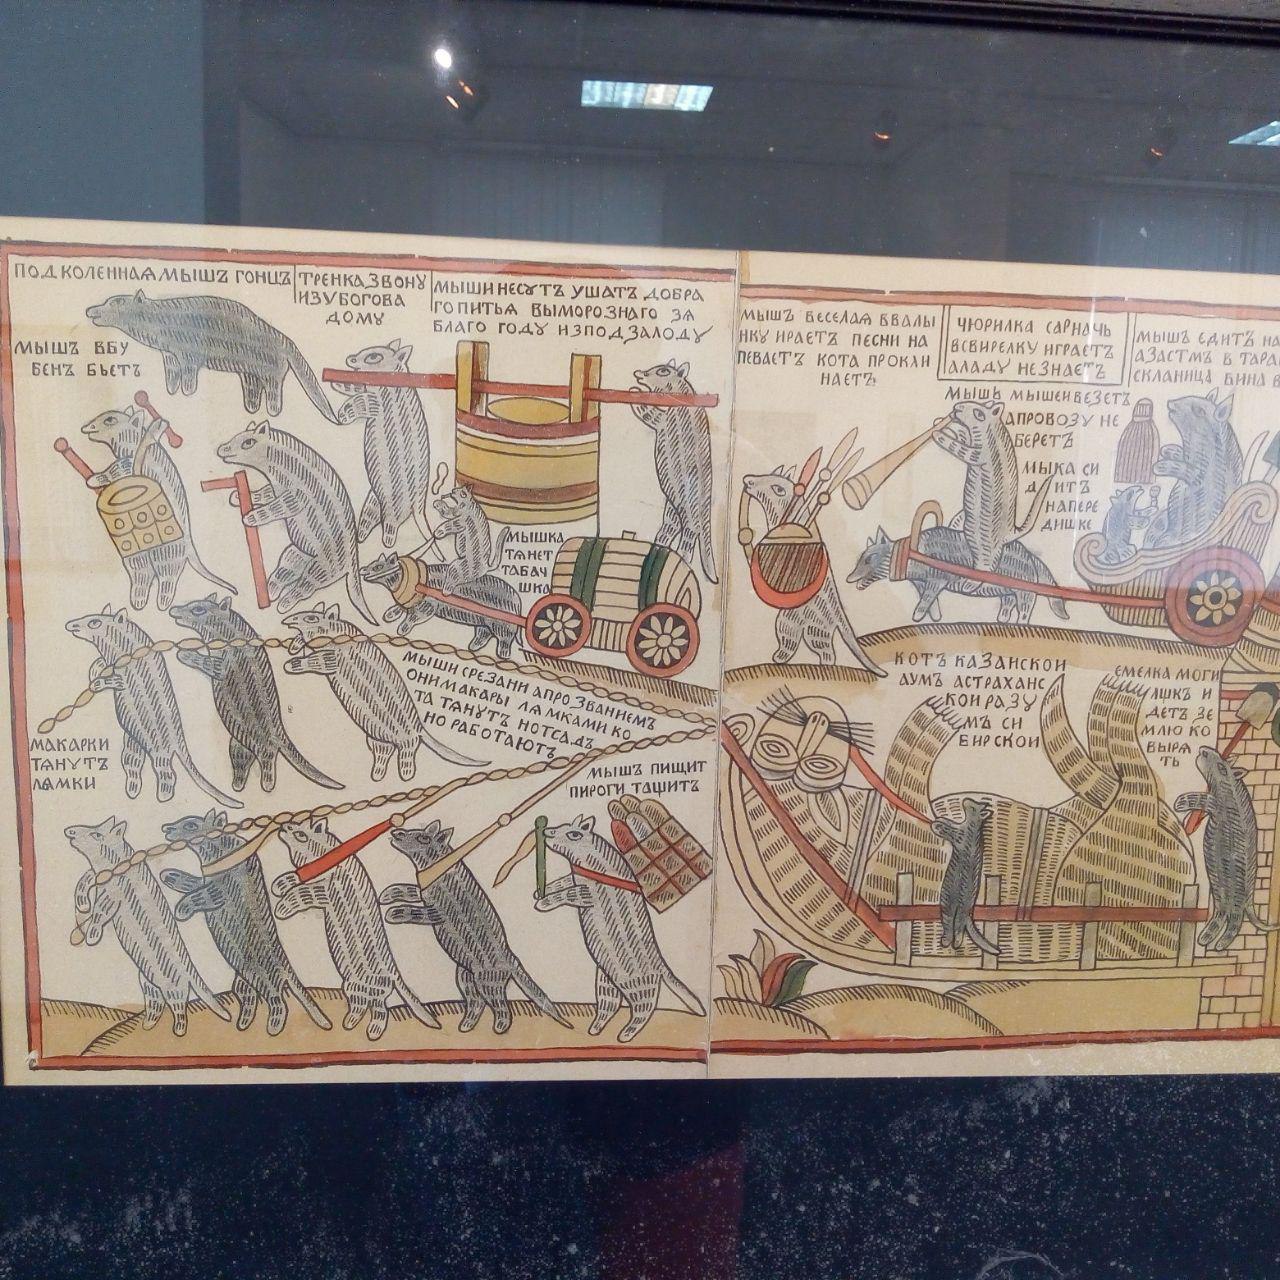 ПОДКОЛЕННАЯ МЫШЪ ГОНЦЪ
ТРЕНКА ЗВОНУ
ИЗУБОГОВА
ДОМУ
МЫШИ НЕСУТЪ УШАТЪ ДОБРА
ГО ПИТЬЯ ВЫМОРОЗНАГО ЗЯ
БЛАГО ГОДУ ИЗПОДЗАЛОДУ
МЫШЪ ВБУ
БЕНЪ БЬЕТЪ
МЫШКА
ТЯНЕТ
ТАБАЧ
ШКА
МЫШИ СРЕЗАНИ АПРОЗВАНИЕМЪ
ОНИ МАКАРЫ ЛЯМКАМИ КО
ТА ТЯНУТЪ НОТСАДЪ
НО РАБОТАЮТЪ
МАКАРКИ
ТЯНУТЪ
ЛЯМКИ
МЫШЪ ПИЩИТ
ПИРОГИ ТАЩИТЪ
МЫШЪ ВЕСЕЛАЯ ВВАЛЫ
НКУ ИРАЕТЪ ПЕСНИ НА
ПЕВАЕТЪ КОТА ПРОКЛИ
НАЕТЪ
ЧЮРИЛКА САРНАЧЬ
ВСВИРЕЛКУ ИГРАЕТЪ
АЛАДУ НЕЗНАЕТЪ
МЫШЪ ЕДИТЪ НА
ВТАРА
СКЛАНИЦА ВИНА В
МЫШЬ МЫШЕИ ВЕЗЕТЪ
АПРОВОЗУ НЕ
БЕРЕТЪ
МЫКА СИ
ДИТЪ
НАПЕРЕ
ДИШКЕ
КОТЪ КАЗАНСКОИ
АУМЪ АСТРАХАНС
КОИ РАЗУ
МЪ СИ
БИРСКОИ
ЕМЕЛКА МОГИ
ЛШКЪ И
ДЕТЪ ЗЕ
МЛЮ КО
ВЫРЯ
ТЬ